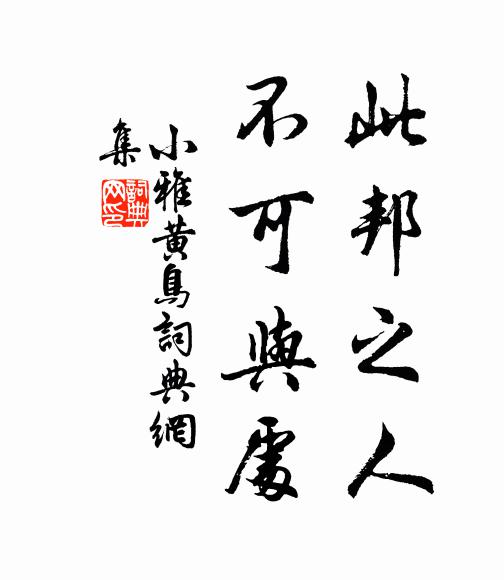 此邦之人
不可與處
小雅黄鳥詞典網
集
詞典
网印